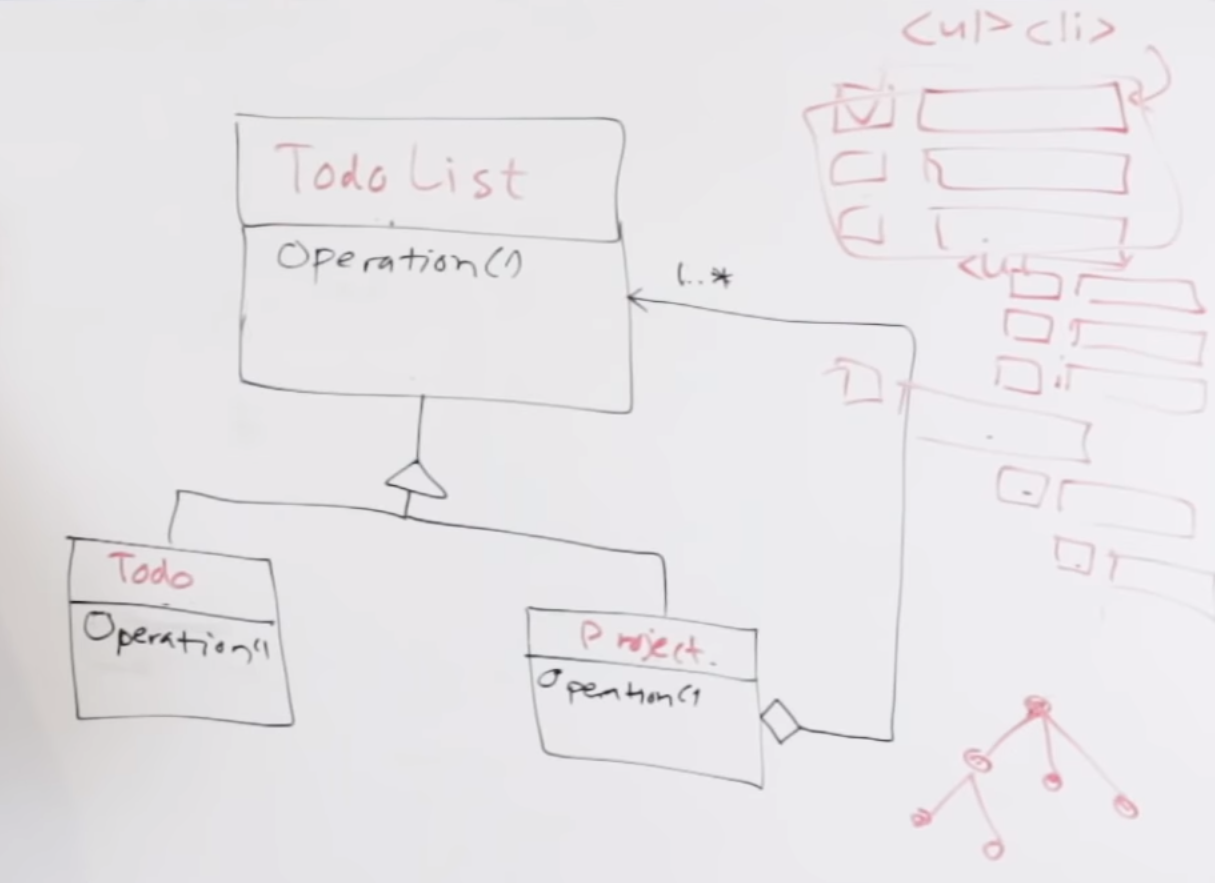 <ul> <li>
Todo List
Operation()
1..*
Todo
Operation()
Project.
Operation()